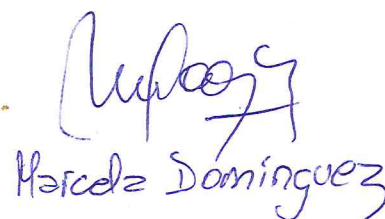 Marcela Domínguez